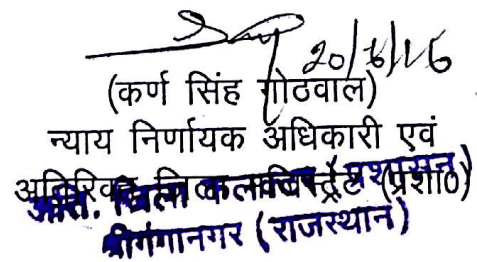 20/6/16
(कर्ण सिंह गोठवाल)
न्याय निर्णायक अधिकारी एवं
अतिरिक्त जिला मजिस्ट्रेट (प्रशा०)
अति. जिला कलक्टर (प्रशासन)
श्रीगंगानगर (राजस्थान)